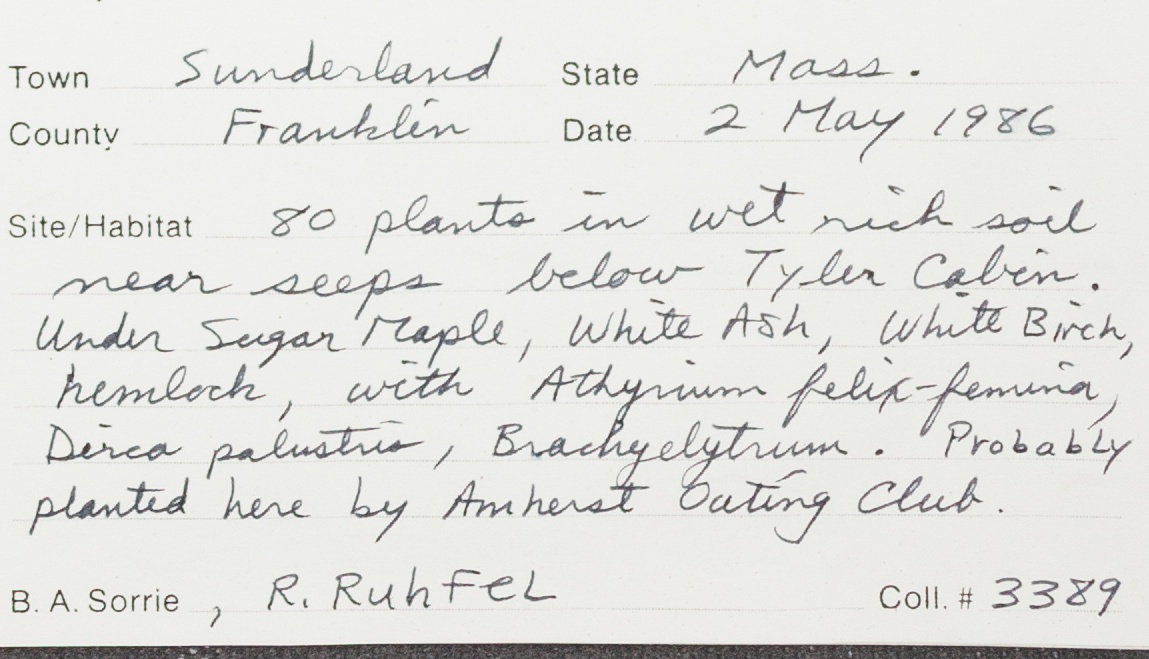 Town Sunderland State Mass.
County Franklin Date 2 May 1986
Site/Habitat 80 plants in wet rich soil
near seeps below Tyler Cabin.
Under Sugar Maple, White Ash, White Birch,
hemlock, with Athyrium felix-femina,
Dirca palustris, Brachyelytrum. Probably
planted here by Amherst Outing Club.
B. A. Sorrie, R. Ruhfel Coll. # 3389